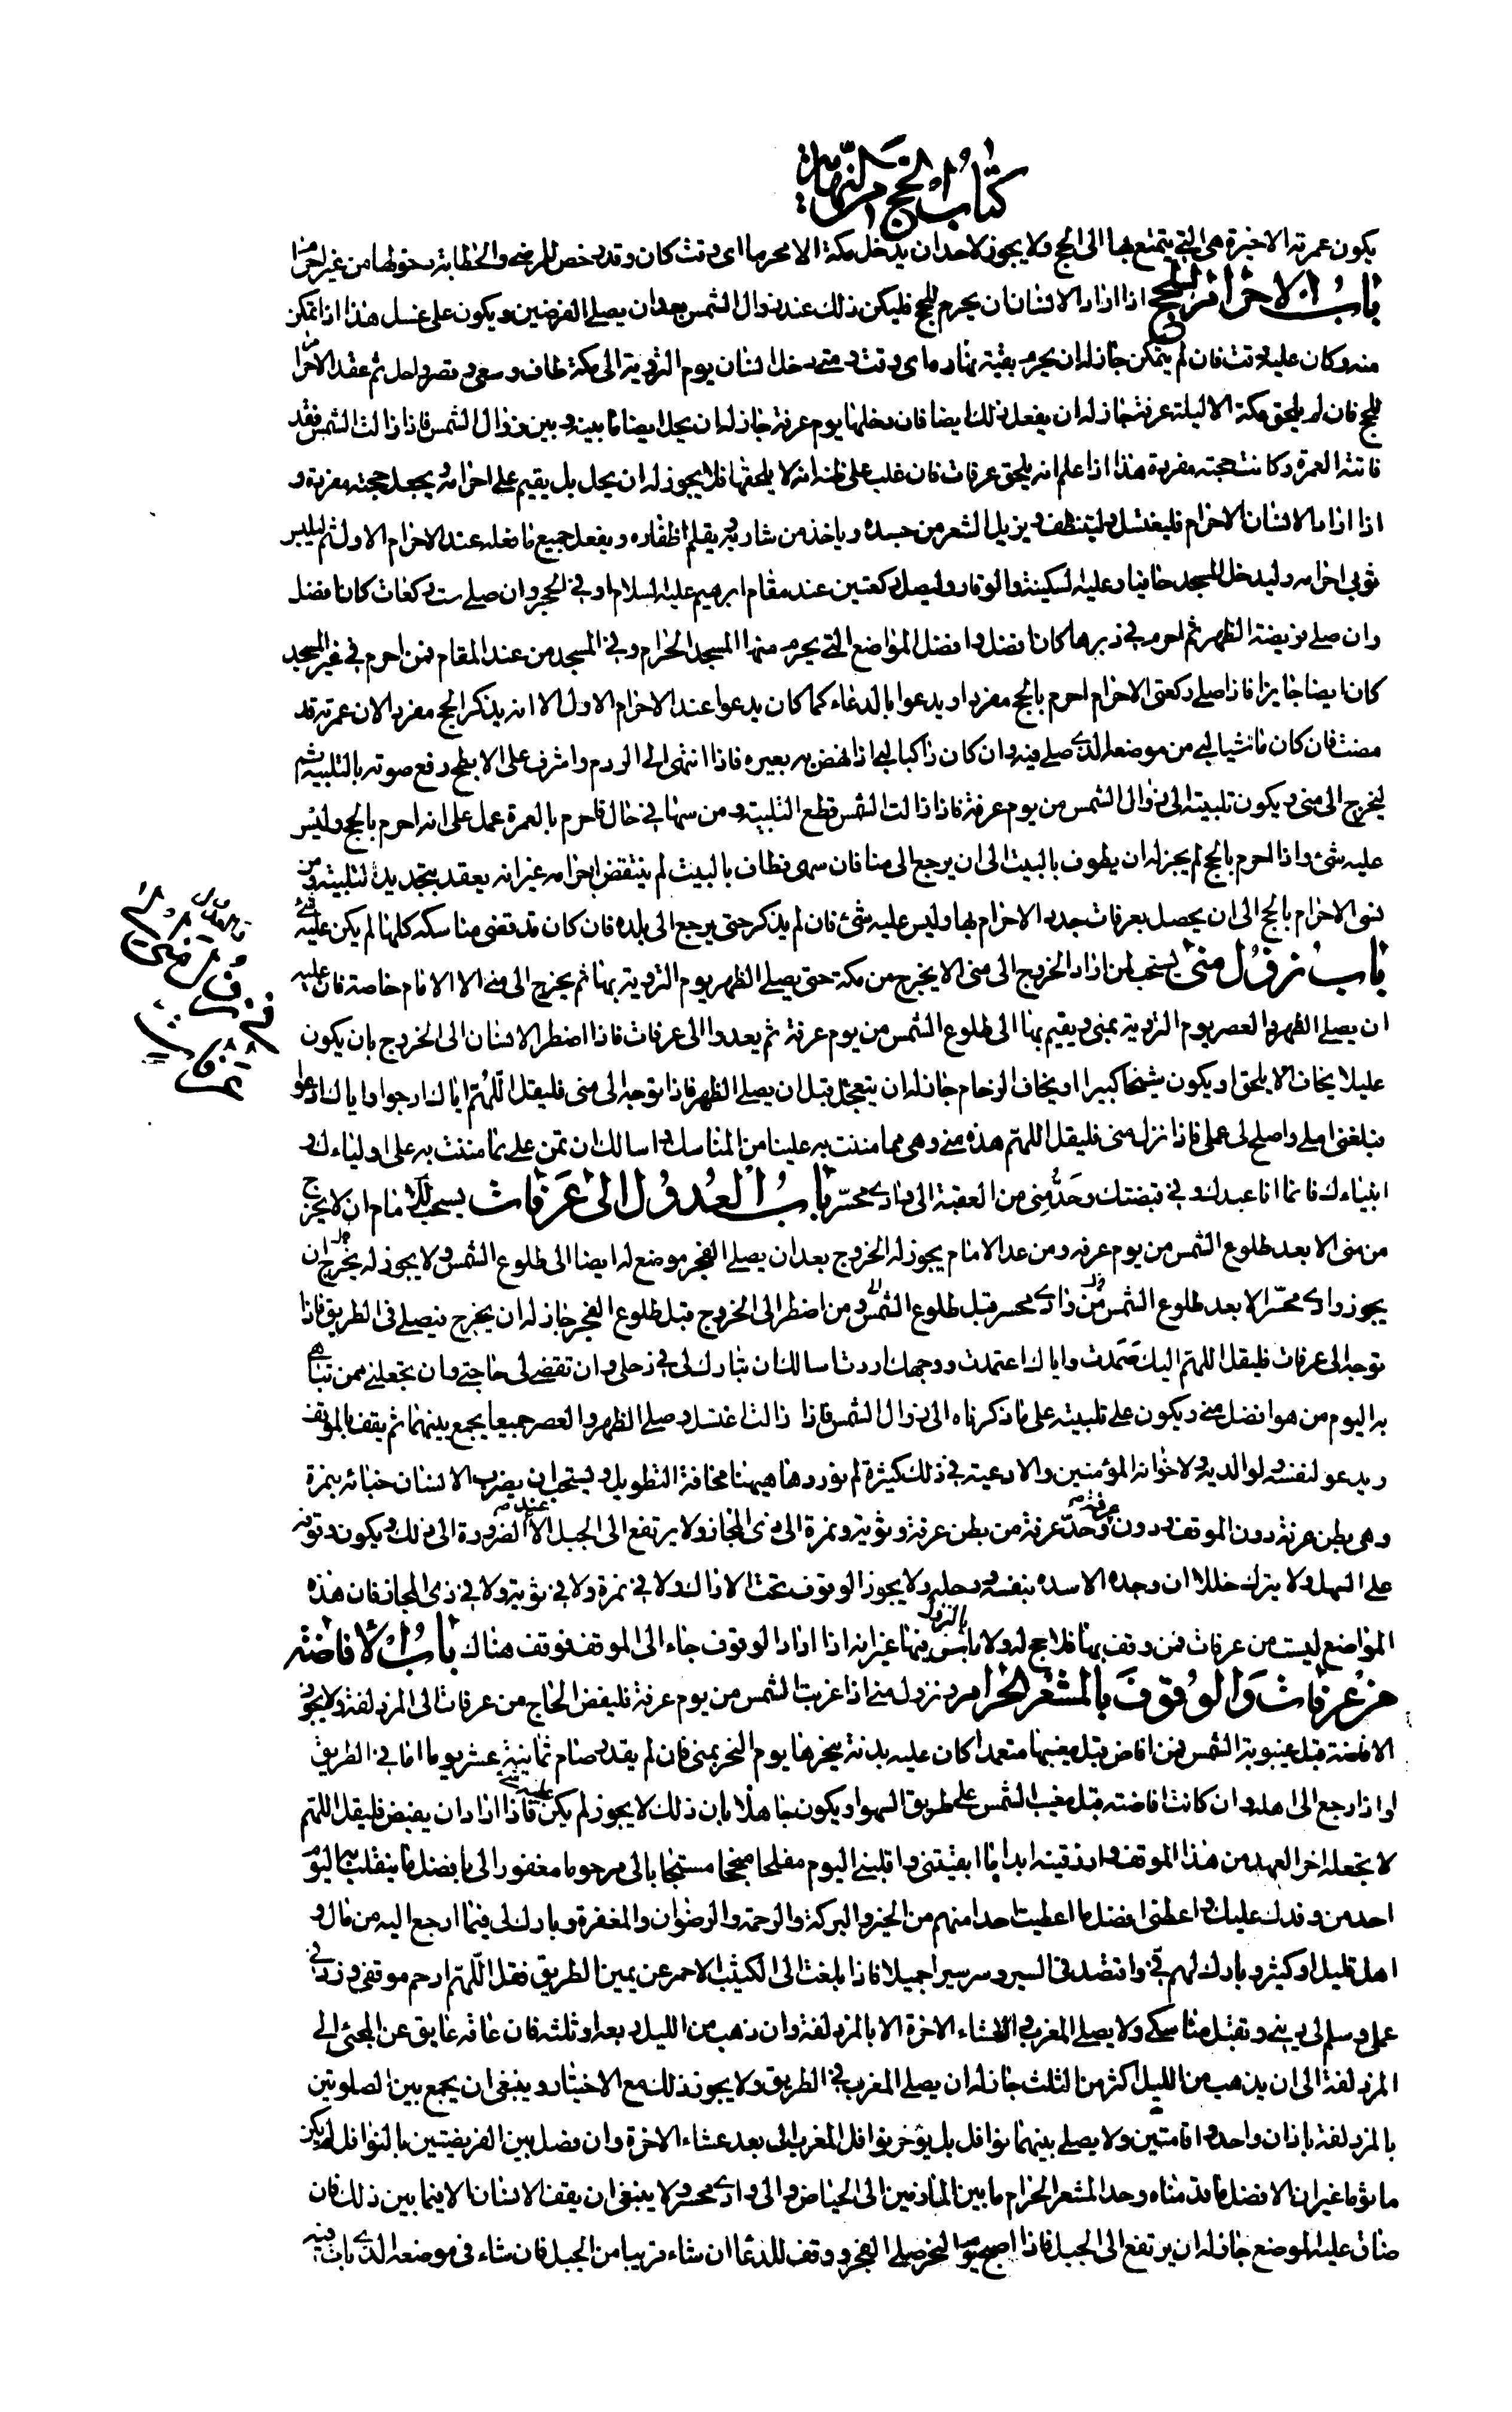 كتاب الحج من النهاية
يكون عمرته الاخيرة هى التى يتمتع بها الى الحج ولا يجوز لاحد ان يدخل مكة الا محرما اى وقت كان وقد رخص للمريض والحطابة دخولها من غير احرام
باب الاحرام للحج اذا اراد الانسان ان يحرم للحج فليكن ذلك عند زوال الشمس بعد ان يصلى الفرضين ويكون على غسل هذا اذا تمكن
منه وكان عليه وقت فان لم يتمكن جاز له ان يحرم بقية نهاره اى وقت ومتى دخل انسان يوم التروية الى مكة طاف وسعى وقصر واحل ثم عقد الاحرام
للحج فان لم يلحق مكة الا ليلة عرفة جاز له ان يفعل ذلك ايضا فان دخلها يوم عرفة جاز له ان يحل ايضا ما بينه وبين زوال الشمس فاذا زالت الشمس فقد
فاتته العمرة وكانت حجته مفردة هذا اذا علم انه يلحق عرفات فان غلب على ظنه انه لا يلحقها فلا يجوز له ان يحل بل يقيم على احرامه ويجعل حجته مفردة و
اذا اراد الانسان الاحرام فليغتسل وليتنظف ويزيل الشعر من جسده وياخذ من شاربه ويقلم اظفاره ويفعل جميع ما فعله عند الاحرام الاول ثم ليلبس
ثوبى احرامه وليدخل المسجد حافيا وعليه السكينة والوقار وليصل ركعتين عند مقام ابرهيم عليه السلام او فى الحجر وان صلى ست ركعات كان افضل
وان صلى فريضة الظهر ثم احرم فى دبرها كان افضل وافضل المواضع التى يحرم منها المسجد الحرام وفى المسجد من عند المقام فمن احرم فى غير المسجد
كان ايضا جايزا فاذا صلى ركعتى الاحرام احرم بالحج مفردا ويدعوا بالدعاء كما كان يدعوا عند الاحرام الاول الا انه يذكر الحج مفردا لان عمرته قد
مضت فان كان ماشيا لبى من موضعه الذى صلى فيه وان كان راكبا لبى اذا نهض به بعيره فاذا انتهى الى الردم واشرف على الابطح رفع صوته بالتلبية ثم
ليخرج الى منى ويكون تلبيته الى زوال الشمس من يوم عرفة فاذا زالت الشمس قطع التلبية ومن سها فى حال فاحرم بالعمرة عمل على انه احرم بالحج وليس
عليه شئ واذا احرم بالحج لم يجز له ان يطوف بالبيت الى ان يرجع الى منا فان سهى فطاف بالبيت لم ينتقض احرامه غير انه يعقد بتجديد التلبية ومن
نسى الاحرام بالحج الى ان يحصل بعرفات جدد الاحرام بها وليس عليه شئ فان لم يذكر حتى يرجع الى بلده فان كان قد قضى مناسكه كلها لم يكن عليه شئ
باب نزول منى يستحب لمن اراد الخروج الى منى الا يخرج من مكة حتى يصلى الظهر يوم التروية بها ثم يخرج الى منى الا الامام خاصة فان عليه
ان يصلى الظهر والعصر يوم التروية بمنى ويقيم بها الى طلوع الشمس من يوم عرفة ثم يعدوا الى عرفات فاذا اضطر الانسان الى الخروج بان يكون
عليلا يخاف الا يلحق او يكون شيخا كبيرا او يخاف الزحام جاز له ان يتعجل قبل ان يصلى الظهر فاذا توجه الى منى فليقل اللهم اياك ارجوا واياك ادعوا
فبلغنى املى واصلح لى عملى فاذا نزل منى فليقل اللهم هذه منى وهى مما مننت به علينا من المناسك واسالك ان تمن على بما مننت به على اولياءك و
انبياءك فانما انا عبدك وفى قبضتك وحد منى من العقبة الى وادى محسر باب العدول الى عرفات يستحب للامام ان لا يخرج
من منى الا بعد طلوع الشمس من يوم عرفه ومن عد الامام يجوز له الخروج بعد ان يصلى الفجر موضع له ايضا الى طلوع الشمس ولا يجوز له يخرج ان
يجوز وادى محسر الا بعد طلوع الشمس من وادى محسر قبل طلوع الشمس ومن اضطر الى الخروج قبل طلوع الفجر جاز له ان يخرج فيصلى فى الطريق فاذا
توجه الى عرفات فليقل اللهم اليك صمدت واياك اعتمدت ووجهك اردت اسالك ان تبارك لى فى رحلى وان تقضى لى حاجتى وان تجعلنى ممن تباهى
به اليوم من هو افضل منى ويكون على تلبيته على ما ذكرناه الى زوال الشمس فاذا زالت اغتسل وصلى الظهر والعصر جميعا يجمع بينهما ثم يقف بالموقف
ويدعو لنفسه ولوالديه ولاخوانه المؤمنين والادعية فى ذلك كثيرة لم نوردها هيهنا مخافة التطويل ويستحب ان يضرب الانسان خبائه بنمرة
وهى بطن عرنة دون الموقف ودون عرفة وحد عرفة من بطن عرنة وثوية ونمرة الى ذى المجاز ولا يرتفع الى الجبل الا عند الضرورة الى ذلك ويكون وقوفه
على السهل ولا يترك خللا ان وجده الا سده بنفسه ورحله ولا يجوز الوقوف تحت الاراك ولا فى نمرة ولا فى ثوية ولا فى ذى المجاز فان هذه
المواضع ليست من عرفات فمن وقف بها فلا حج له ولا باس بالنزول فيها غير انه اذا اراد الوقوف جاء الى الموقف فوقف هناك باب الافاضة
من عرفات والوقوف بالمشعر الحرام ونزول منى اذا غربت الشمس من يوم عرفة فليفض الحاج من عرفات الى المزدلفة ولا يجوز
الافاضة قبل غيبوبة الشمس فمن افاض قبل مغيبها متعمدا كان عليه بدنة ينحرها يوم النحر بمنى فان لم يقدر صام ثمانية عشر يوما اما فى الطريق
او اذا رجع الى اهله وان كانت افاضته قبل مغيب الشمس على طريق السهو او يكون جاهلا بان ذلك لا يجوز لم يكن عليه شئ فاذا اراد ان يفيض فليقل اللهم
لا تجعله اخر العهد من هذا الموقف وارزقنيه ابدا ما ابقيتنى واقلبنى اليوم مفلحا منجحا مستجابا لى مرحوما مغفورا لى بافضل ما ينقلب به اليوم
احد من وفدك عليك واعطنى افضل ما اعطيت احدا منهم من الخير والبركة والرحمة والرضوان والمغفرة وبارك لى فيما ارجع اليه من مال و
اهل قليل او كثير وبارك لهم فى واقتصد فى السير وسر سيرا جميلا فاذا بلغت الى الكثيب الاحمر عن يمين الطريق فقل اللهم ارحم موقفى وزد فى
عملى وسلم لى دينى وتقبل مناسكى ولا يصلى المغرب والعشاء الاخرة الا بالمزدلفة وان ذهب من الليل ربعه او ثلثه فان عاقه عايق عن المجئ الى
المزدلفة الى ان يذهب من الليل اكثر من الثلث جاز له ان يصلى المغرب فى الطريق ولا يجوز ذلك مع الاختيار وينبغى ان يجمع بين الصلوتين
بالمزدلفة باذان واحد واقامتين ولا يصلى بينهما نوافل بل يؤخر نوافل المغرب الى بعد عشاء الاخرة وان فصل بين الفريضتين بالنوافل لم يكن
ماثوما غير ان الافضل ما قدمناه وحد المشعر الحرام ما بين المازمين الى الحياض والى وادى محسر ولا ينبغى ان يقف الانسان الا فيما بين ذلك فان
ضاق عليه الموضع جاز له ان يرتفع الى الجبل فاذا اصبح يوم النحر صلى الفجر ووقف للدعا ان شاء قريبا من الجبل فان شاء فى موضعه الذى بات فيه
نزول منى
عرفات